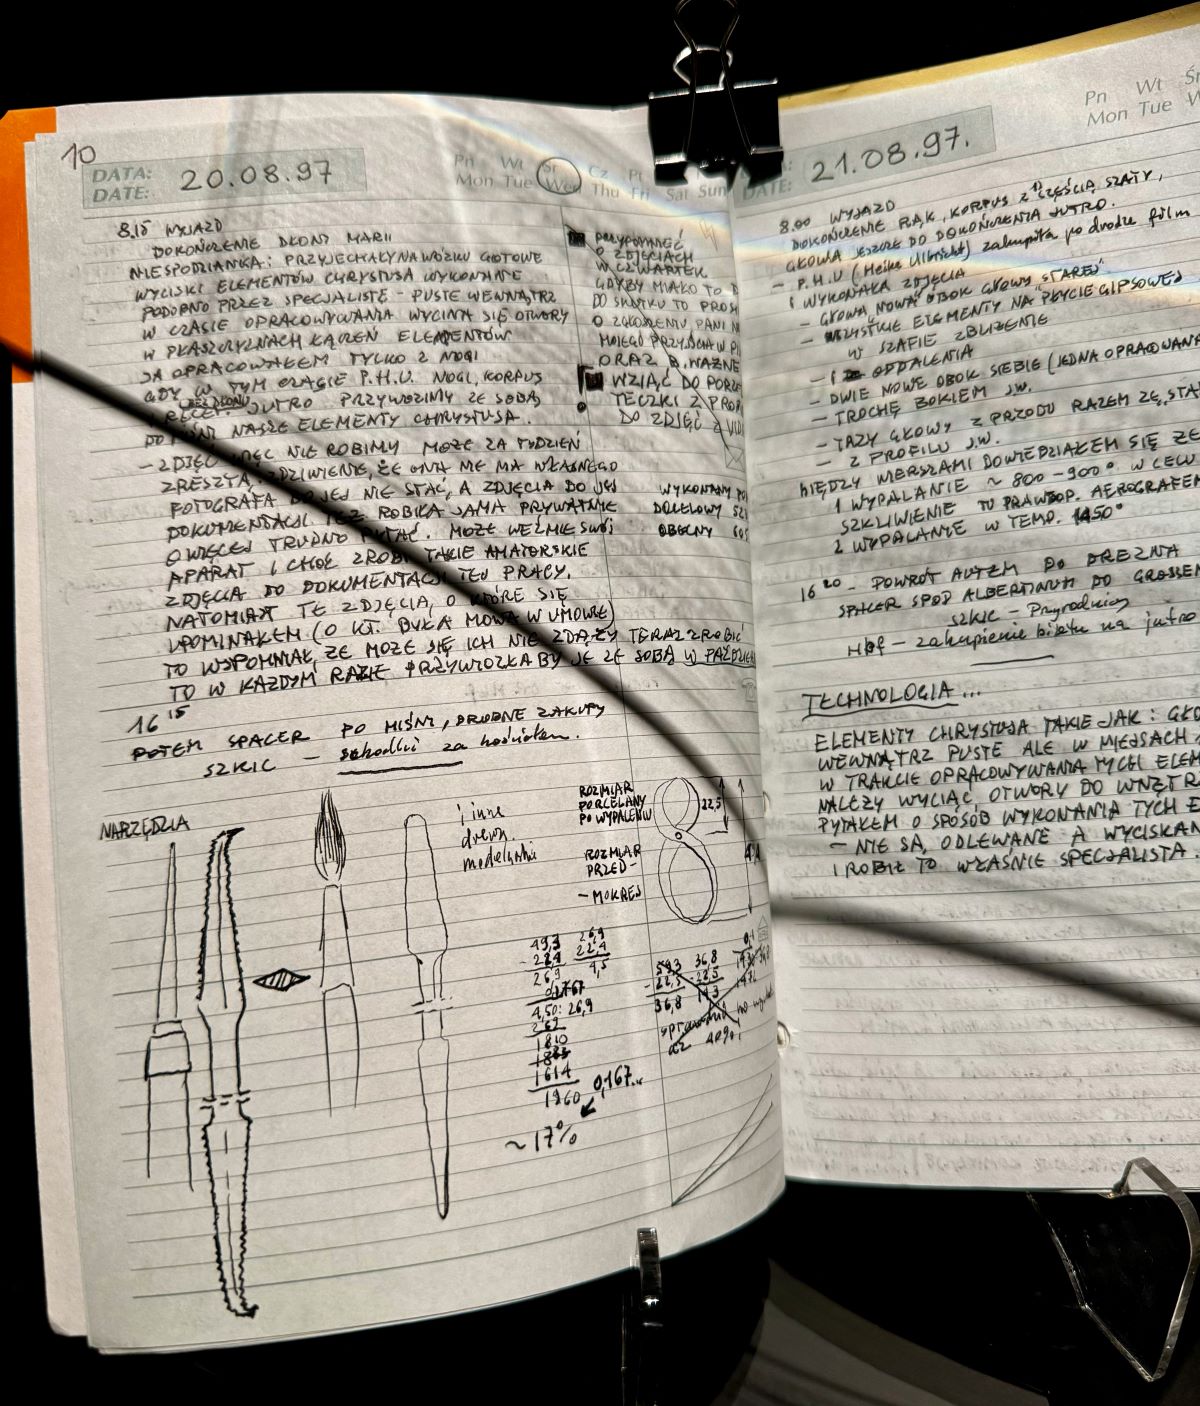 10
DATA:
DATE: 20.08.97
Pn Wt Śr Cz Pt
Mon Tue Wed Thu Fri Sat Sun
8.15 WYJAZD
DOKOŃCZENIE DŁONI MARII
NIESPODZIANKA: PRZYJECHAŁY NA WÓZKU GOTOWE
WYCISKI ELEMENTÓW CHRYSTUSA WYKONANE
PODOBNO PRZEZ SPECJALISTĘ - PUSTE WEWNĄTRZ
W CZASIE OPRACOWYWANIA WYCINA SIĘ OTWORY
W PŁASZCZYZNACH ELEMENTÓW
JA OPRACOWAŁEM TYLKO 2 NOGI
GDY W TYM CZASIE P.H.U. NOGI, KORPUS
I RĘCE. JUTRO PRZYWOZIMY ZE SOBĄ
DO MIŚNI NASZE ELEMENTY CHRYSTUSA.
- ZDJĘĆ WIĘC NIE ROBIMY MOŻE ZA TYDZIEŃ
ZRESZTĄ ZDZIWIENIE, ŻE ONA NIE MA WŁASNEGO
FOTOGRAFA BO JEJ NIE STAĆ, A ZDJĘCIA DO JEJ
DOKUMENTACJI TEŻ ROBIŁA SAMA PRYWATNIE
O WIĘCEJ TRUDNO PYTAĆ. MOŻE WEŹMIE SWÓJ
APARAT I CHOĆ ZROBI TAKIE AMATORSKIE
ZDJĘCIA DO DOKUMENTACJI TEJ PRACY.
NATOMIAST TE ZDJĘCIA, O KTÓRE SIĘ
UPOMINAŁEM (O KT. BYŁA MOWA W UMOWIE)
TO WSPOMNIAŁ, ŻE MOŻE SIĘ ICH NIE ZDĄŻY TERAZ ZROBIĆ
TO W KAŻDYM RAZIE PRZYWIOZŁABY JE ZE SOBĄ W
16 15
POTEM SPACER PO MIŚNI, DROBNE ZAKUPY
SZKIC - schodki za kościołem.
PRZYPOMNIEĆ
O ZDJĘCIACH
W CZWARTEK
GDYBY MIAŁO TO
DO SKUTKU TO
O ZGŁOSZENIU PANI
MOJEGO PRZYJŚCIA W
ORAZ B. WAŻNE
WZIĄĆ DO
TECZKI Z
DO ZDJĘĆ Z
WYKONANY
DOCELOWY
OBECNY
NARZĘDZIA
i inne
drewn.
ROZMIAR
PORCELANY
PO WYPALENIU
22,5
ROZMIAR
PRZED-
- MOKREJ
49,3 26,9
- 22,4 22,4
26,9 4,5
4,50: 26,9
2 69
1810
1614
1960 0,167..
~ 17%
59,3 36,8
- 22,5 - 22,5
36,8 14,3
40%
21.08.97.
Pn Wt
Mon Tue
8.00 WYJAZD
DOKOŃCZENIE RĄK, KORPUS Z CZĘŚCIĄ SZATY,
GŁOWA JESZCZE DO DOKOŃCZENIA JUTRO.
- P.H.U (Heike Ulbricht) zakupiła po drodze film
i WYKONAŁA ZDJĘCIA
- GŁOWA NOWA OBOK GŁOWY "STAREJ"
- WSZYSTKIE ELEMENTY NA PŁYCIE GIPSOWEJ
W SZAFIE ZBLIŻENIE
ODDALENIA
- DWIE NOWE OBOK SIEBIE (JEDNA OPRACOWANA
- TROCHĘ BOKIEM J.W.
GŁOWY Z PRZODU RAZEM ZE
- Z PROFILU J.W.
MIĘDZY WIERSZAMI DOWIEDZIAŁEM SIĘ ŻE
1 WYPALANIE ~ 800-900° W CELU
SZKLIWIENIE TO PRAWDOP. AEROGRAFEM
2 WYPALANIE W TEMP. 1450°
16 20 - POWRÓT AUTEM DO DREZNA
SPACER SPOD ALBERTINUM DO GROSSEN
SZKIC -
HBf - zakupienie biletu na jutro
TECHNOLOGIA...
ELEMENTY CHRYSTUSA TAKIE JAK:
WEWNĄTRZ PUSTE ALE W MIEJSCACH
W TRAKCIE OPRACOWYWANIA TYCH
NALEŻY WYCIĄĆ OTWORY DO
PYTAŁEM O SPOSÓB WYKONANIA TYCH
- NIE SĄ, ODLEWANE A
I ROBIŁ TO WŁAŚNIE SPECJALISTA.